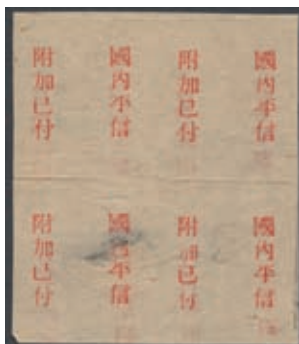 國內平信
附加已付
國內平信
附加已付
國內平信
附加已付
國內平信
附加已付